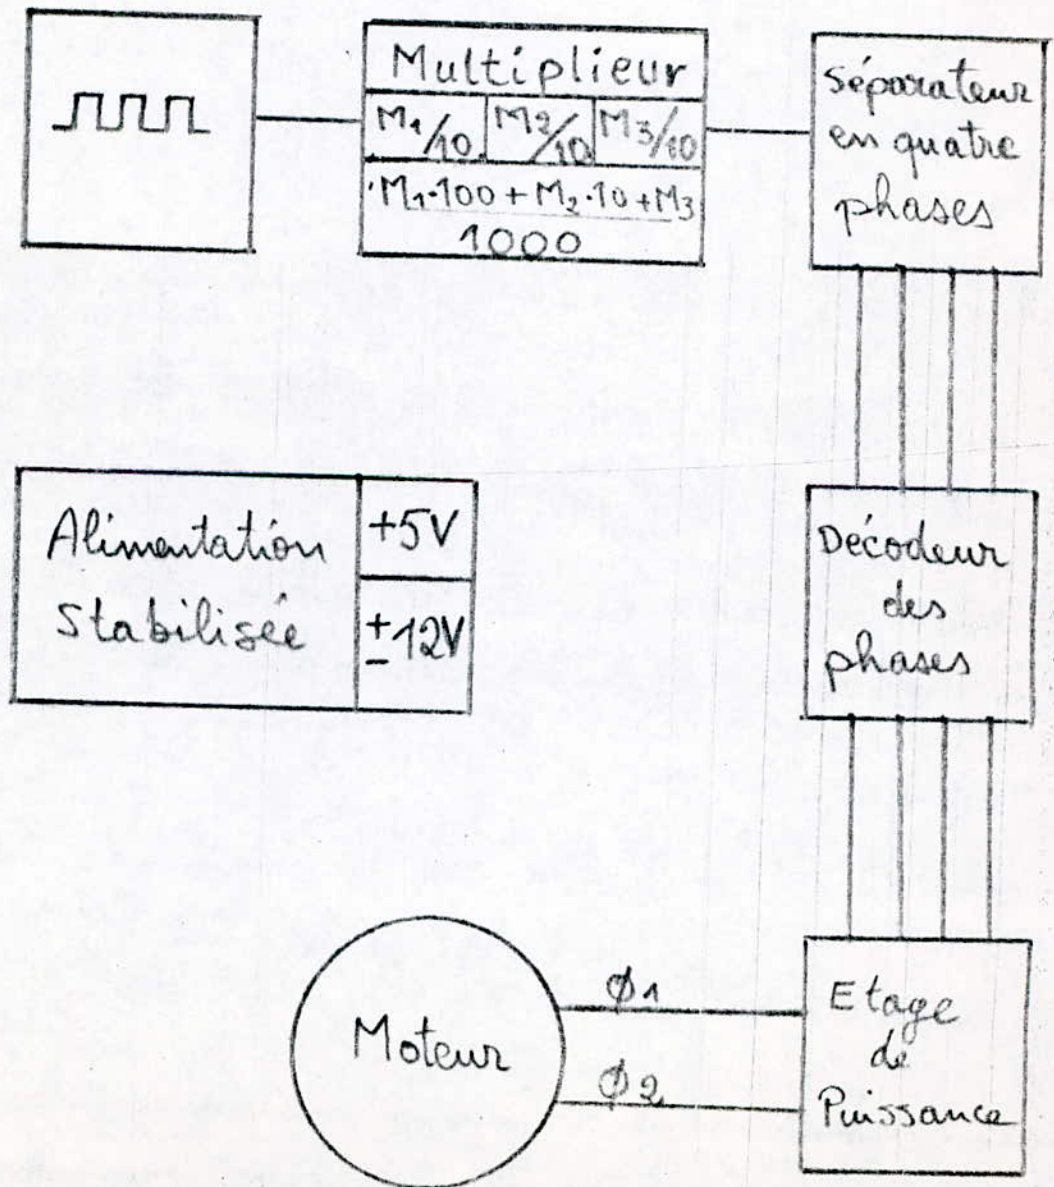 Multiplieur
M1/10 M2/10 M3/10
M1·100 + M2·10 + M3
1000
Séparateur
en quatre
phases
Alimentation
Stabilisée
+5V
±12V
Décodeur
des
phases
Moteur
Φ1
Φ2
Etage
de
Puissance